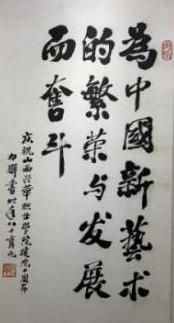 為中國新藝术
的繁荣与发展
而奮斗
庆祝山西兴華职业學院建院十周年
力群書时年八十有九